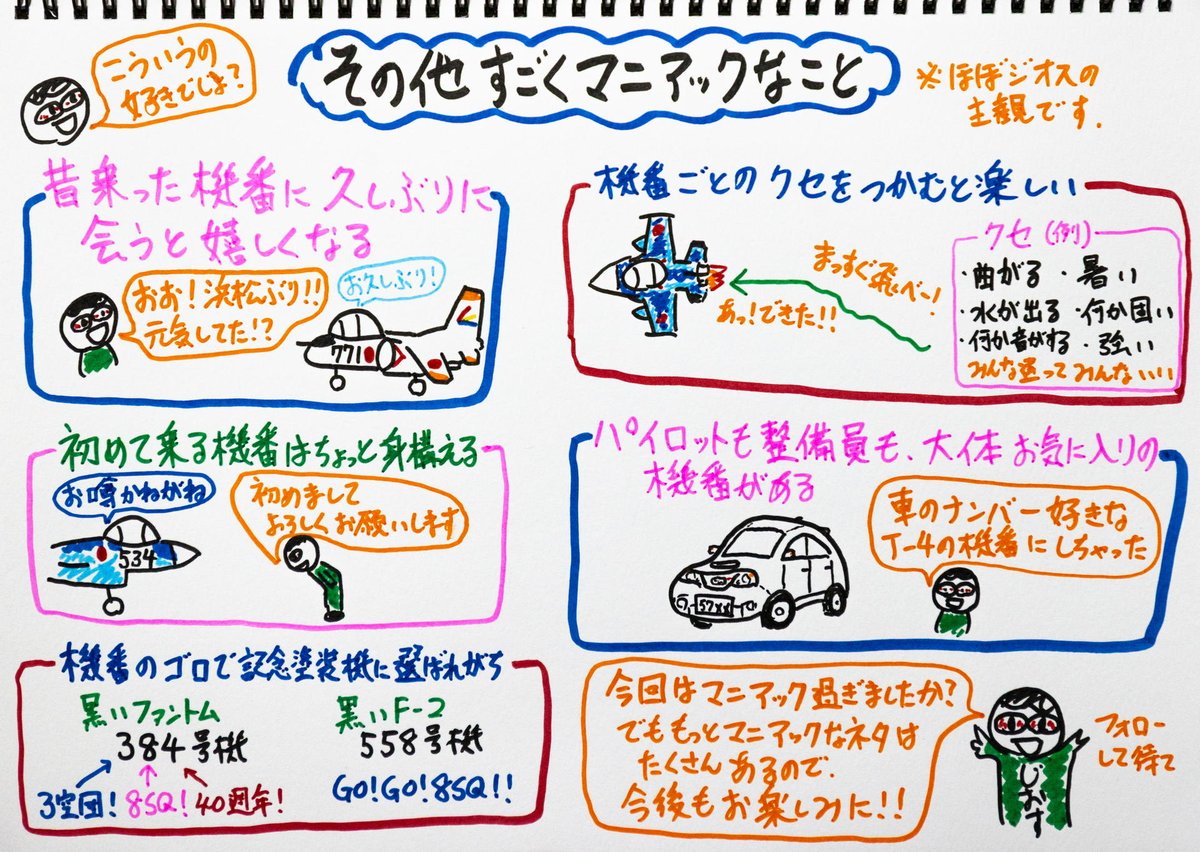 こういうの
好きでしょ?
その他 すごくマニアックなこと
※ほぼジオスの
主観です.
昔乗った機番に久しぶりに
会うと嬉しくなる
おお!浜松ぶり!!
元気してた!?
お久しぶり!
771
機番ごとのクセをつかむと楽しい
まっすぐ飛べー!
あっ!できた!!
クセ(例)
・曲がる ・暑い
・水が出る ・何か固い
・何か音がする ・強い
みんな違ってみんないい
初めて来る機番はちょっと身構える
お噂かねがね
初めまして
よろしくお願いします
534
パイロットも整備員も、大体お気に入りの
機番がある
車のナンバー好きな
T-4の機番にしちゃった
57xx
機番のゴロで記念塗装機に選ばれがち
黒いファントム
384号機
3空団! 8SQ! 40週年!
黒いF-2
558号機
GO!GO!8SQ!!
今回はマニアック過ぎましたか?
でももっとマニアックなネタは
たくさんあるので、
今後もお楽しみに!!
じおす
フォロー
して待て